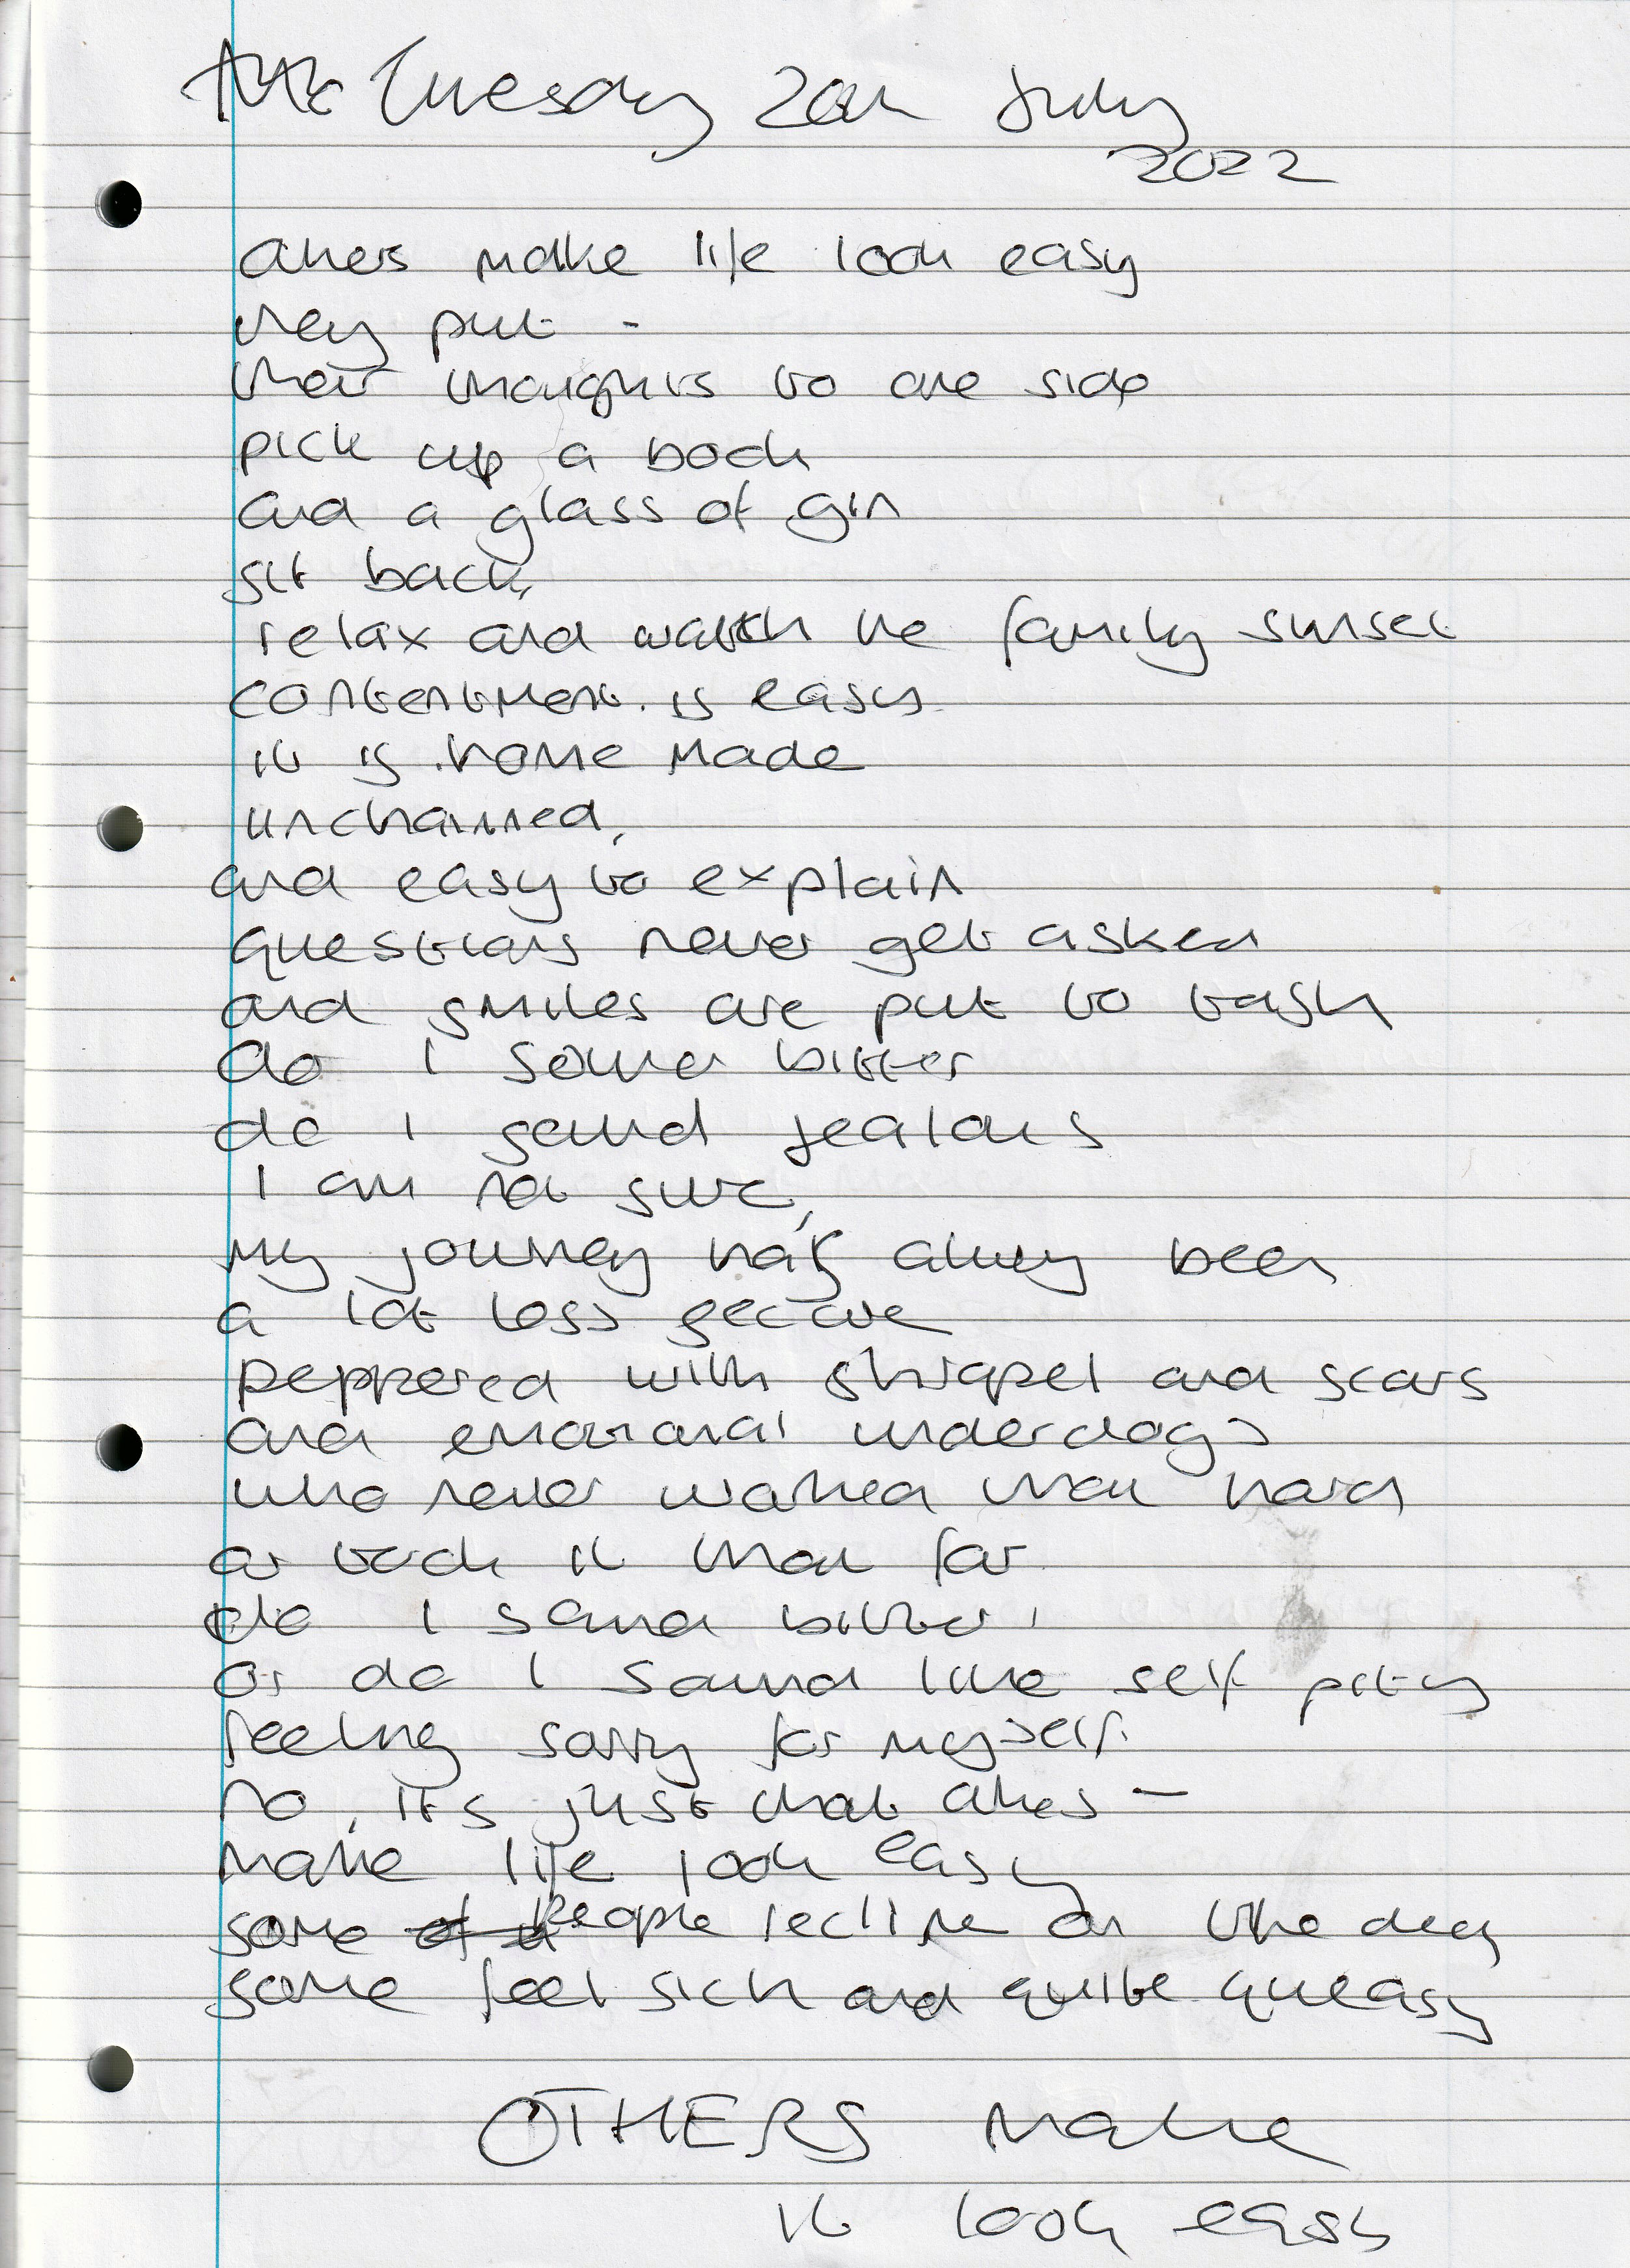 Tuesday 20th July
2022
others make life look easy
they put -
their thoughts to one side
pick up a book
and a glass of gin
sit back,
relax and watch the family sunset
contentment is easy
it is home made
unchained,
and easy to explain
questions never get asked
and smiles are put to
do I sound bitter
do I sound jealous
I am not sure,
my journey has alway been
a lot less secure
peppered with shrapel and scars
and emotional underdogs
who never worked that hard
or took it that far
do I sound bitter,
or do I sound like self pity
feeling sorry for myself.
no, its just that others -
make life look easy
some people recline on the day
some feel sick and quite queasy
OTHERS make
it look easy